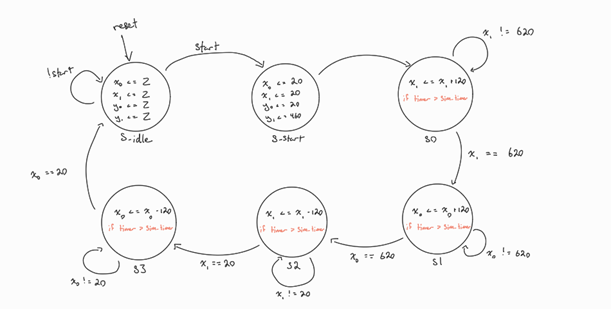 reset
!start
start
x₀ <= Z
x₁ <= Z
y₀ <= Z
y₁ <= Z
S_idle
x₀ <= 20
x₁ <= 20
y₀ <= 20
y₁ <= 460
S_start
x₁ != 620
x₁ <= x₁+120
if timer > sim.time
S0
x₁ == 620
x₀ <= x₀+120
if timer > sim.time
S1
x₀ != 620
x₀ == 620
x₁ <= x₁-120
if timer > sim.time
S2
x₁ != 20
x₁ == 20
x₀ <= x₀-120
if timer > sim.time
S3
x₀ != 20
x₀ == 20